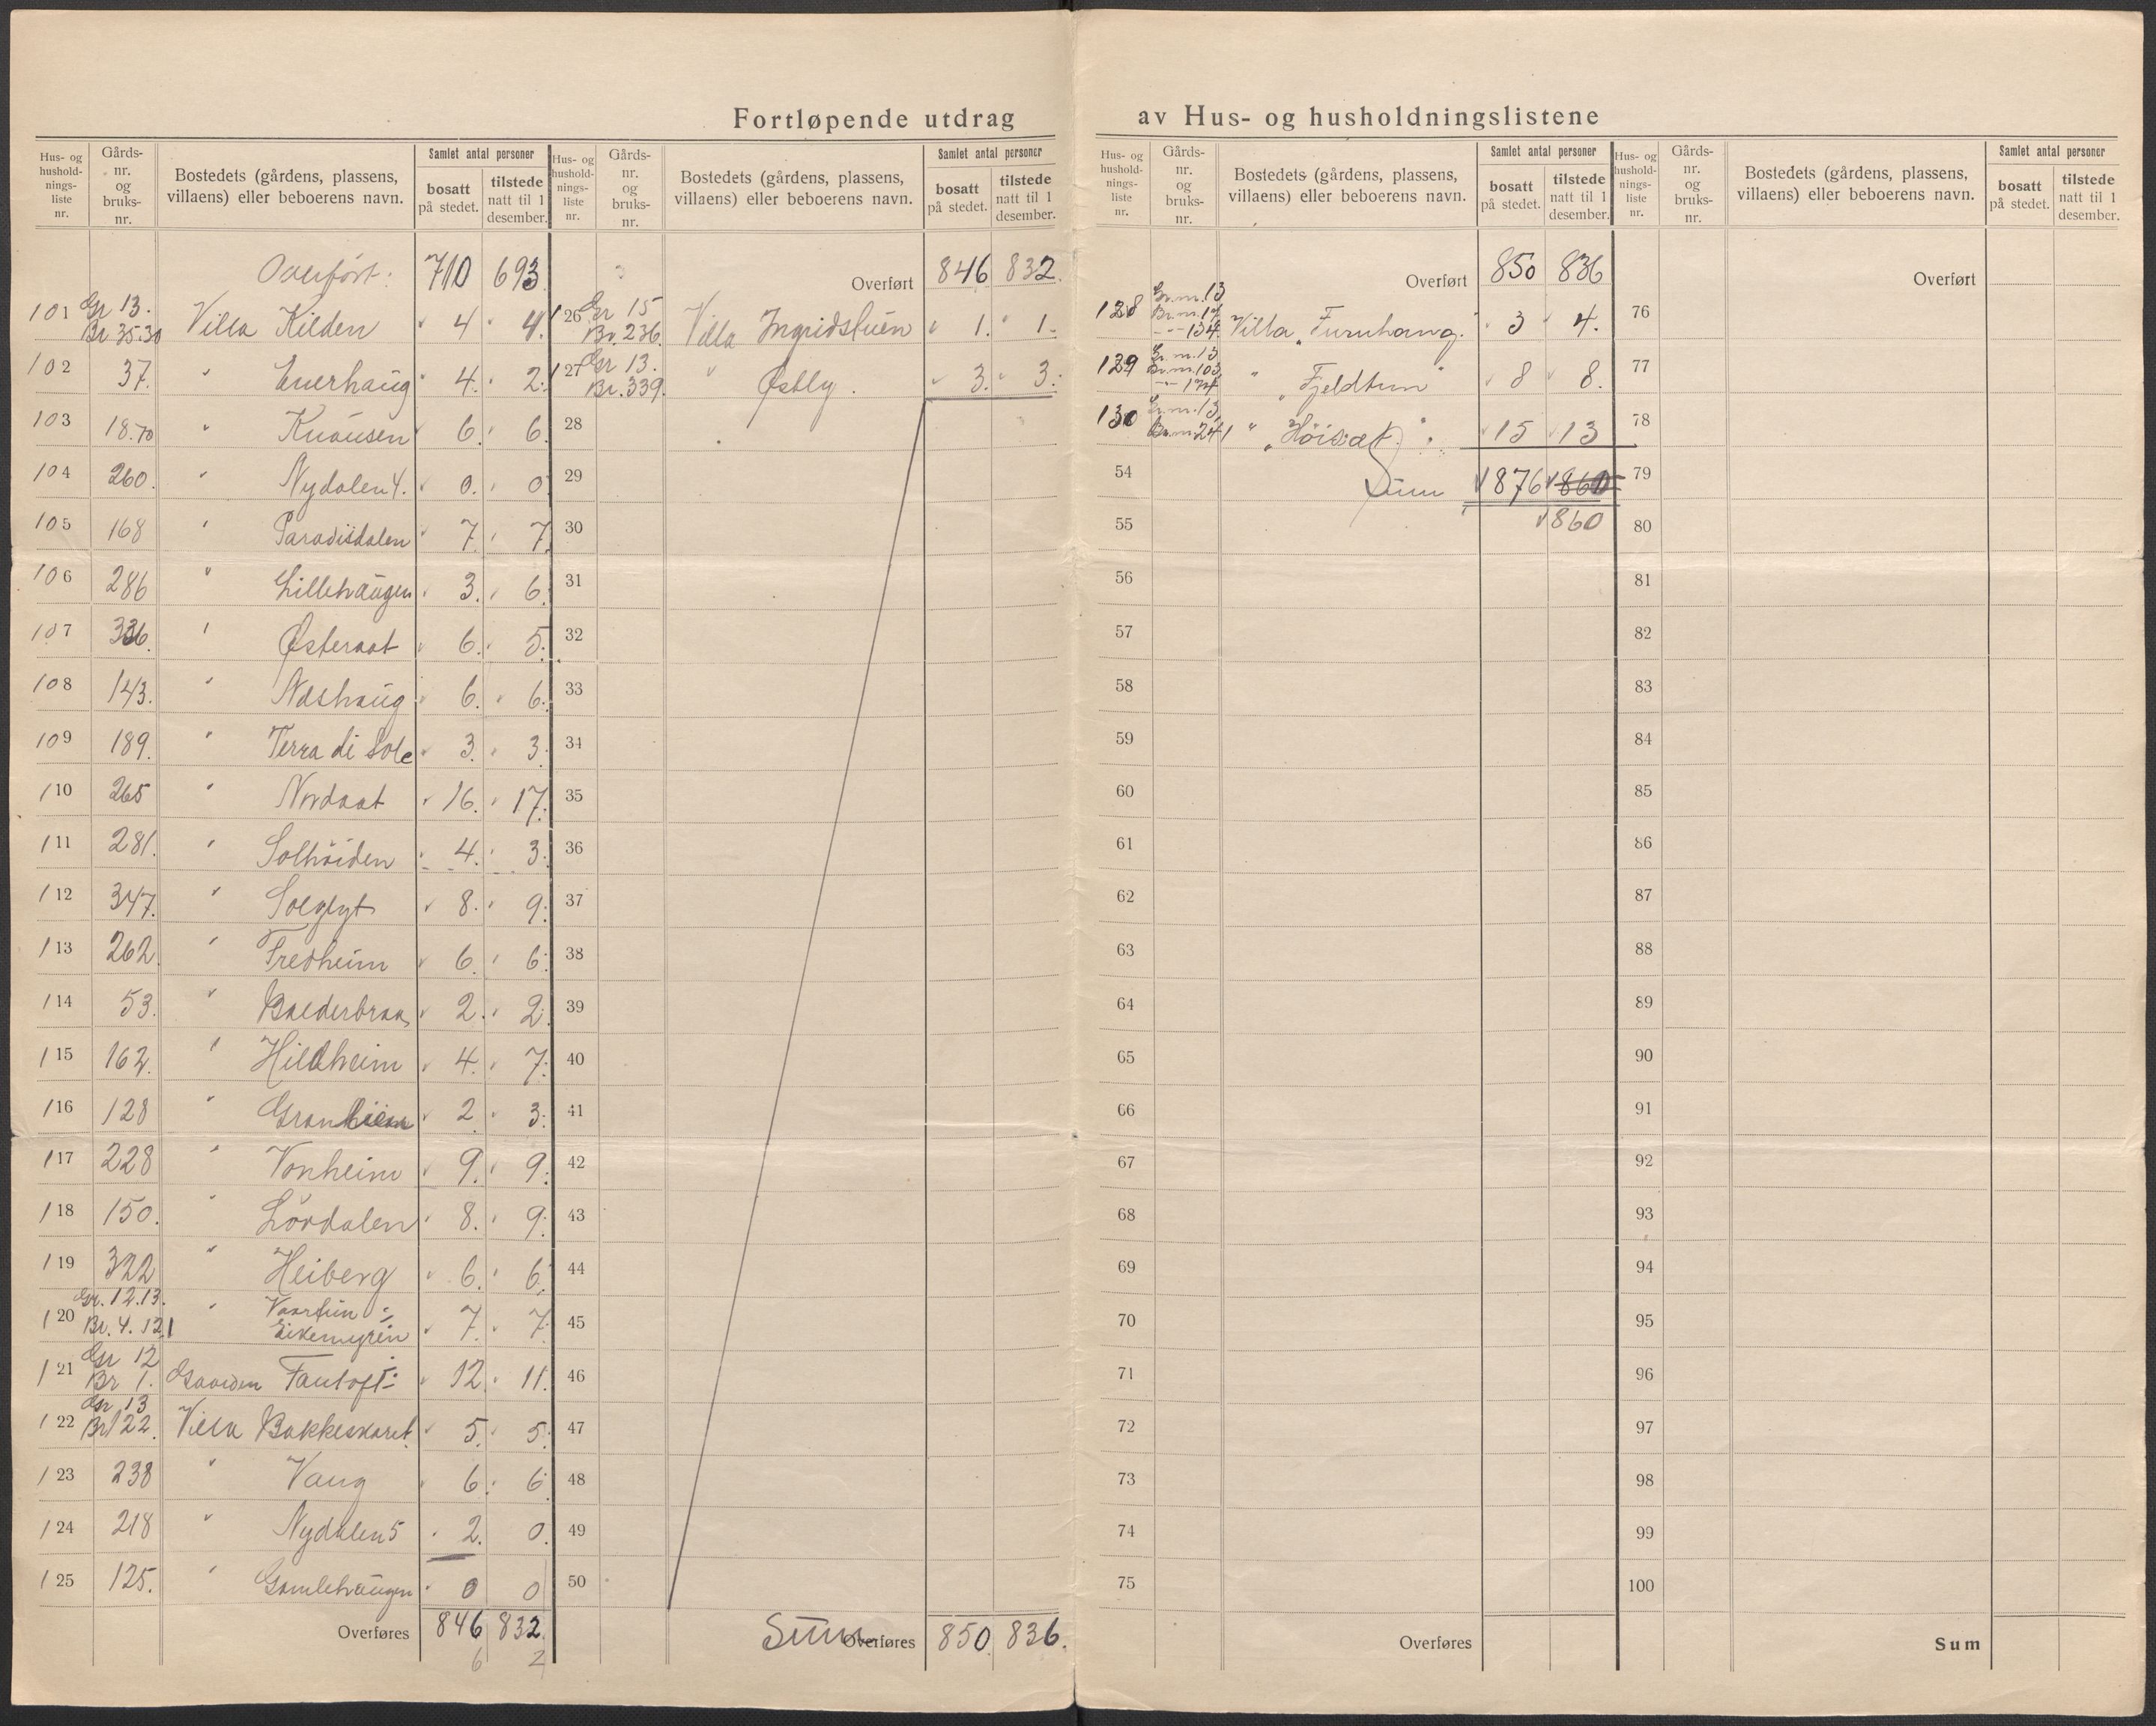 Fortløpende utdrag av Hus- og husholdningslistene
Hus- og hushold- nings- liste nr. | Gårds- nr. og bruks- nr. | Bostedets (gårdens, plassens, villaens) eller beboerens navn. | Samlet antal personer | bosatt på stedet. | tilstede natt til 1 desember.
Overført: 710 693
101 Gr 13. Br 35.30 Villa Kilden 4 4.
102 37. " Enerhaug 4. 2.
103 18.70 " Knausen 6. 6
104 260. " Nydalen 4. 0. 0
105 168 " Paradisdalen 7. 7
106 286 " Lillehaugen 3. 6.
107 336. " Østeraat 6. 5.
108 143. " Næshaug 6. 6.
109 189. " Terra di Sole 3. 3.
110 265 " Nordaat 16. 17.
111 281. " Solhöiden 4. 3.
112 347. " Solglyt 8. 9.
113 262 " Fredheim 6. 6.
114 53. " Balderbraa 2. 2.
115 162. " Hildheim 4. 7.
116 128 " 2 3.
117 228 " Vonheim 9. 9.
118 150. " Lövdalen 8. 9.
119 322 " Heiberg 6. 6.
120 Gr. 12.13. Br. 4. 121 " Vaartun Eikemyren 7. 7
121 Gr 12 Br 1. Gaarden Fantoft 12. 11.
122 Gr 13 Br 122. Villa Bakkeskaret 5. 5.
123 238 " Vang 6. 6
124 218 " Nydalen 5 2. 0.
125 125. " Gamlehaugen 0 0
Overføres 846 832.
6 2
Hus- og hushold- nings- liste nr. | Gårds- nr. og bruks- nr. | Bostedets (gårdens, plassens, villaens) eller beboerens navn. | Samlet antal personer | bosatt på stedet. | tilstede natt til 1 desember.
Overført 846 832.
126 Gr 15 Br. 236. Villa Ingridstuen 1. 1.
127 Gr 13. Br. 339. " Østly. 3. 3.
28
29
30
31
32
33
34
35
36
37
38
39
40
41
42
43
44
45
46
47
48
49
50
Sum Overføres 850 836.
Hus- og hushold- nings- liste nr. | Gårds- nr. og bruks- nr. | Bostedets (gårdens, plassens, villaens) eller beboerens navn. | Samlet antal personer | bosatt på stedet. | tilstede natt til 1 desember.
Overført 850 836
128 Gr.nr. 13 Br.nr. 17 -"- 134 Villa „Furuhaug" 3 4.
129 Gr.nr. 13 Br.nr. 103 -"- 174 " „Fjeldtun" 8 8.
130 Gr.nr. 13, Br.nr. 241 " „Höisæt" 15 13
54 Sum 876 860
55 860
56
57
58
59
60
61
62
63
64
65
66
67
68
69
70
71
72
73
74
75
Overføres
Hus- og hushold- nings- liste nr. | Gårds- nr. og bruks- nr. | Bostedets (gårdens, plassens, villaens) eller beboerens navn. | Samlet antal personer | bosatt på stedet. | tilstede natt til 1 desember.
Overført
76
77
78
79
80
81
82
83
84
85
86
87
88
89
90
91
92
93
94
95
96
97
98
99
100
Sum